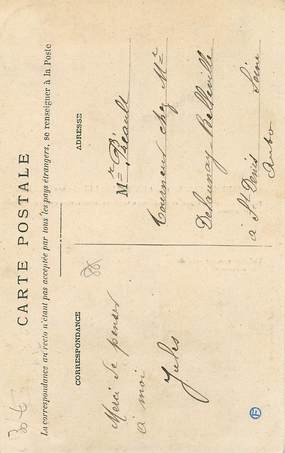 CARTE POSTALE
La correspondance au recto n'étant pas acceptée par tous les pays étrangers, se renseigner à la Poste
CORRESPONDANCE
Merci de penser
à moi
Jules
ADRESSE
Mr
Tourneur chez Mr
Delaunay Belleville
à St Denis Seine
30 €